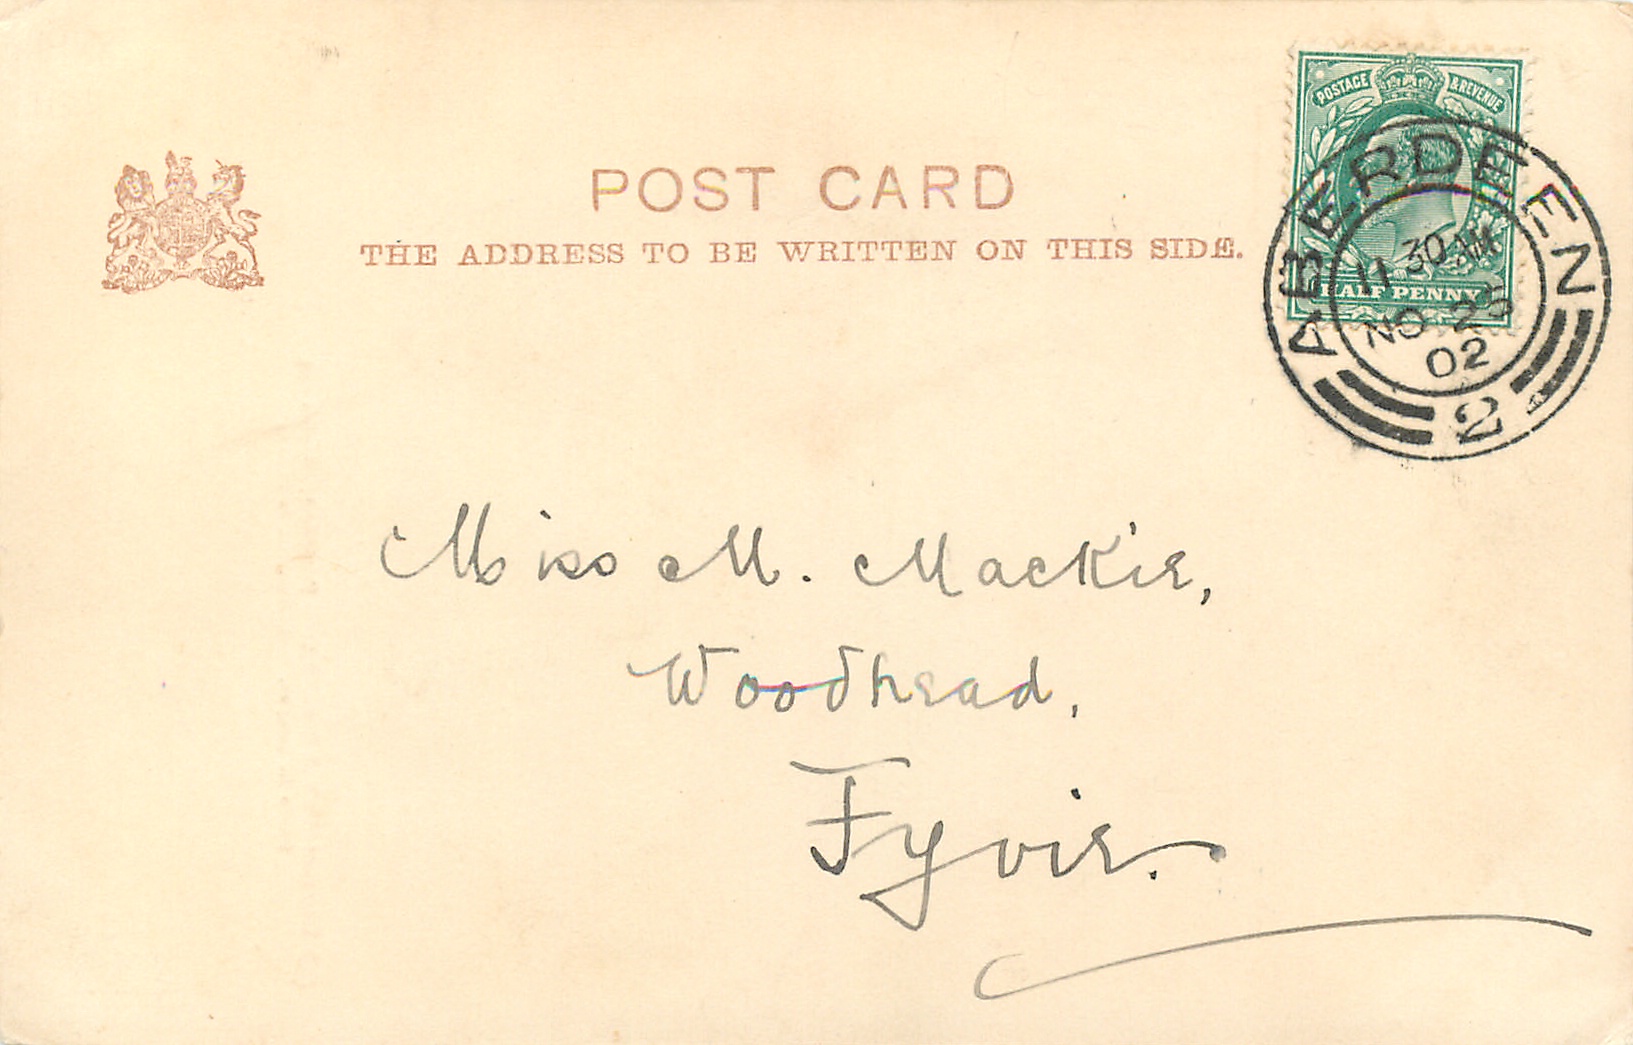 POSTAGE & REVENUE
HALF PENNY
ABERDEEN
11 30 AM
NO 25
02
2
POST CARD
THE ADDRESS TO BE WRITTEN ON THIS SIDE.
Miss M. Mackie,
Woodhead,
Fyvie.